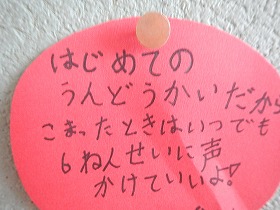 はじめての
うんどうかいだから
こまったときはいつでも
6ねんせいに声
かけていいよ!